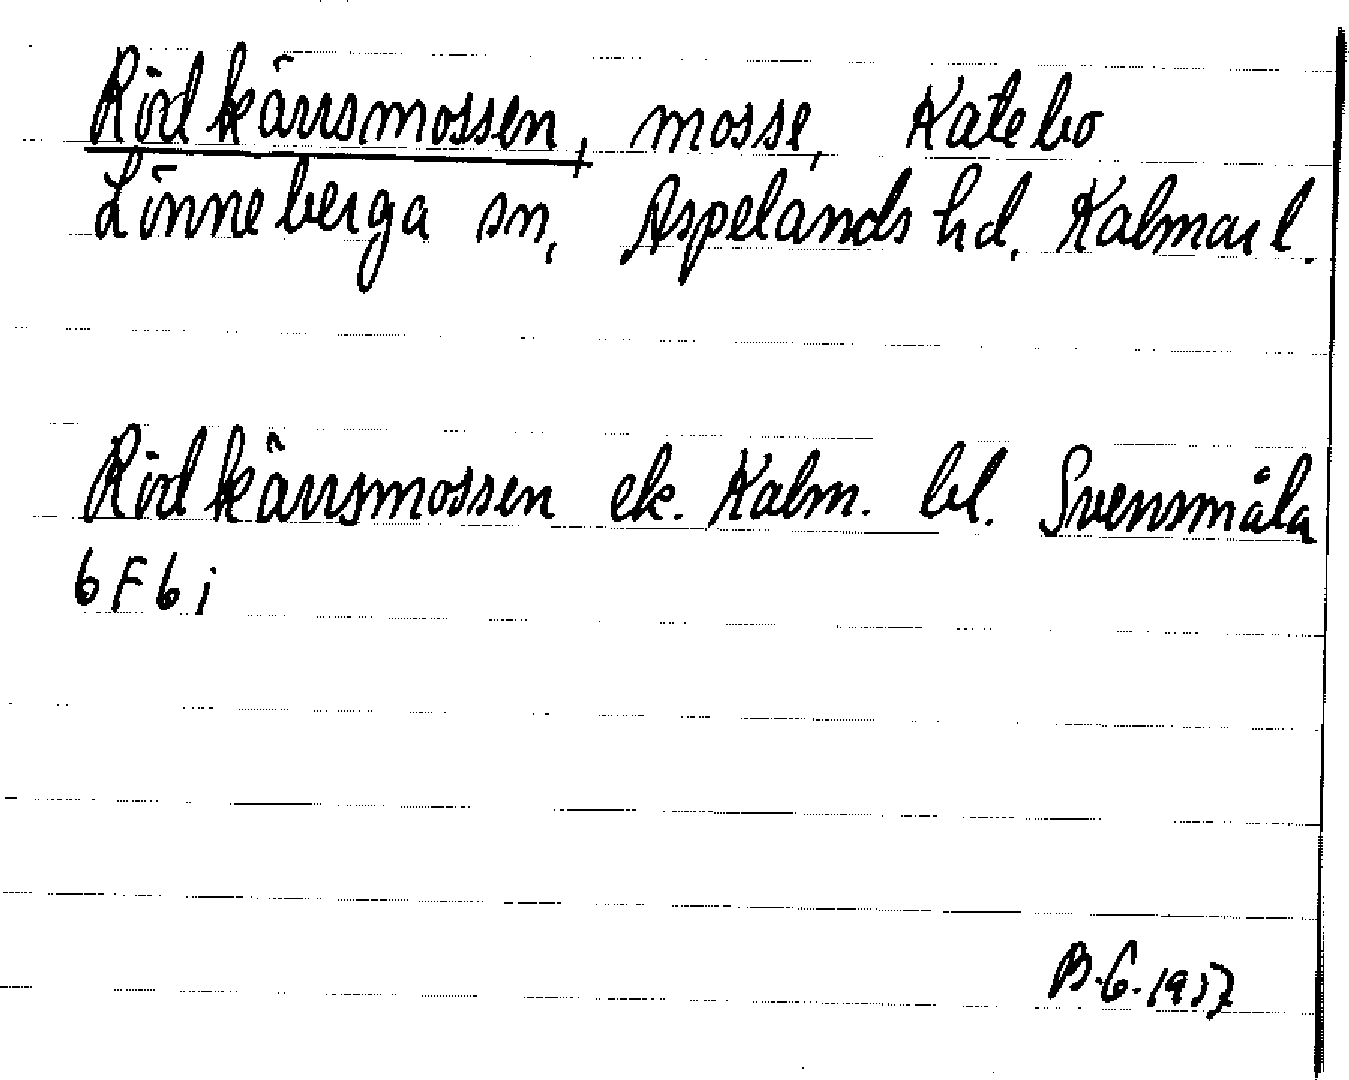 Rödkärrsmossen, mosse, Katebo
Lönneberga sn, Aspelands hd, Kalmar l.
Rödkärrsmossen ek. Kalm. bl. Svensmåla
6F6i
B.G. 1957